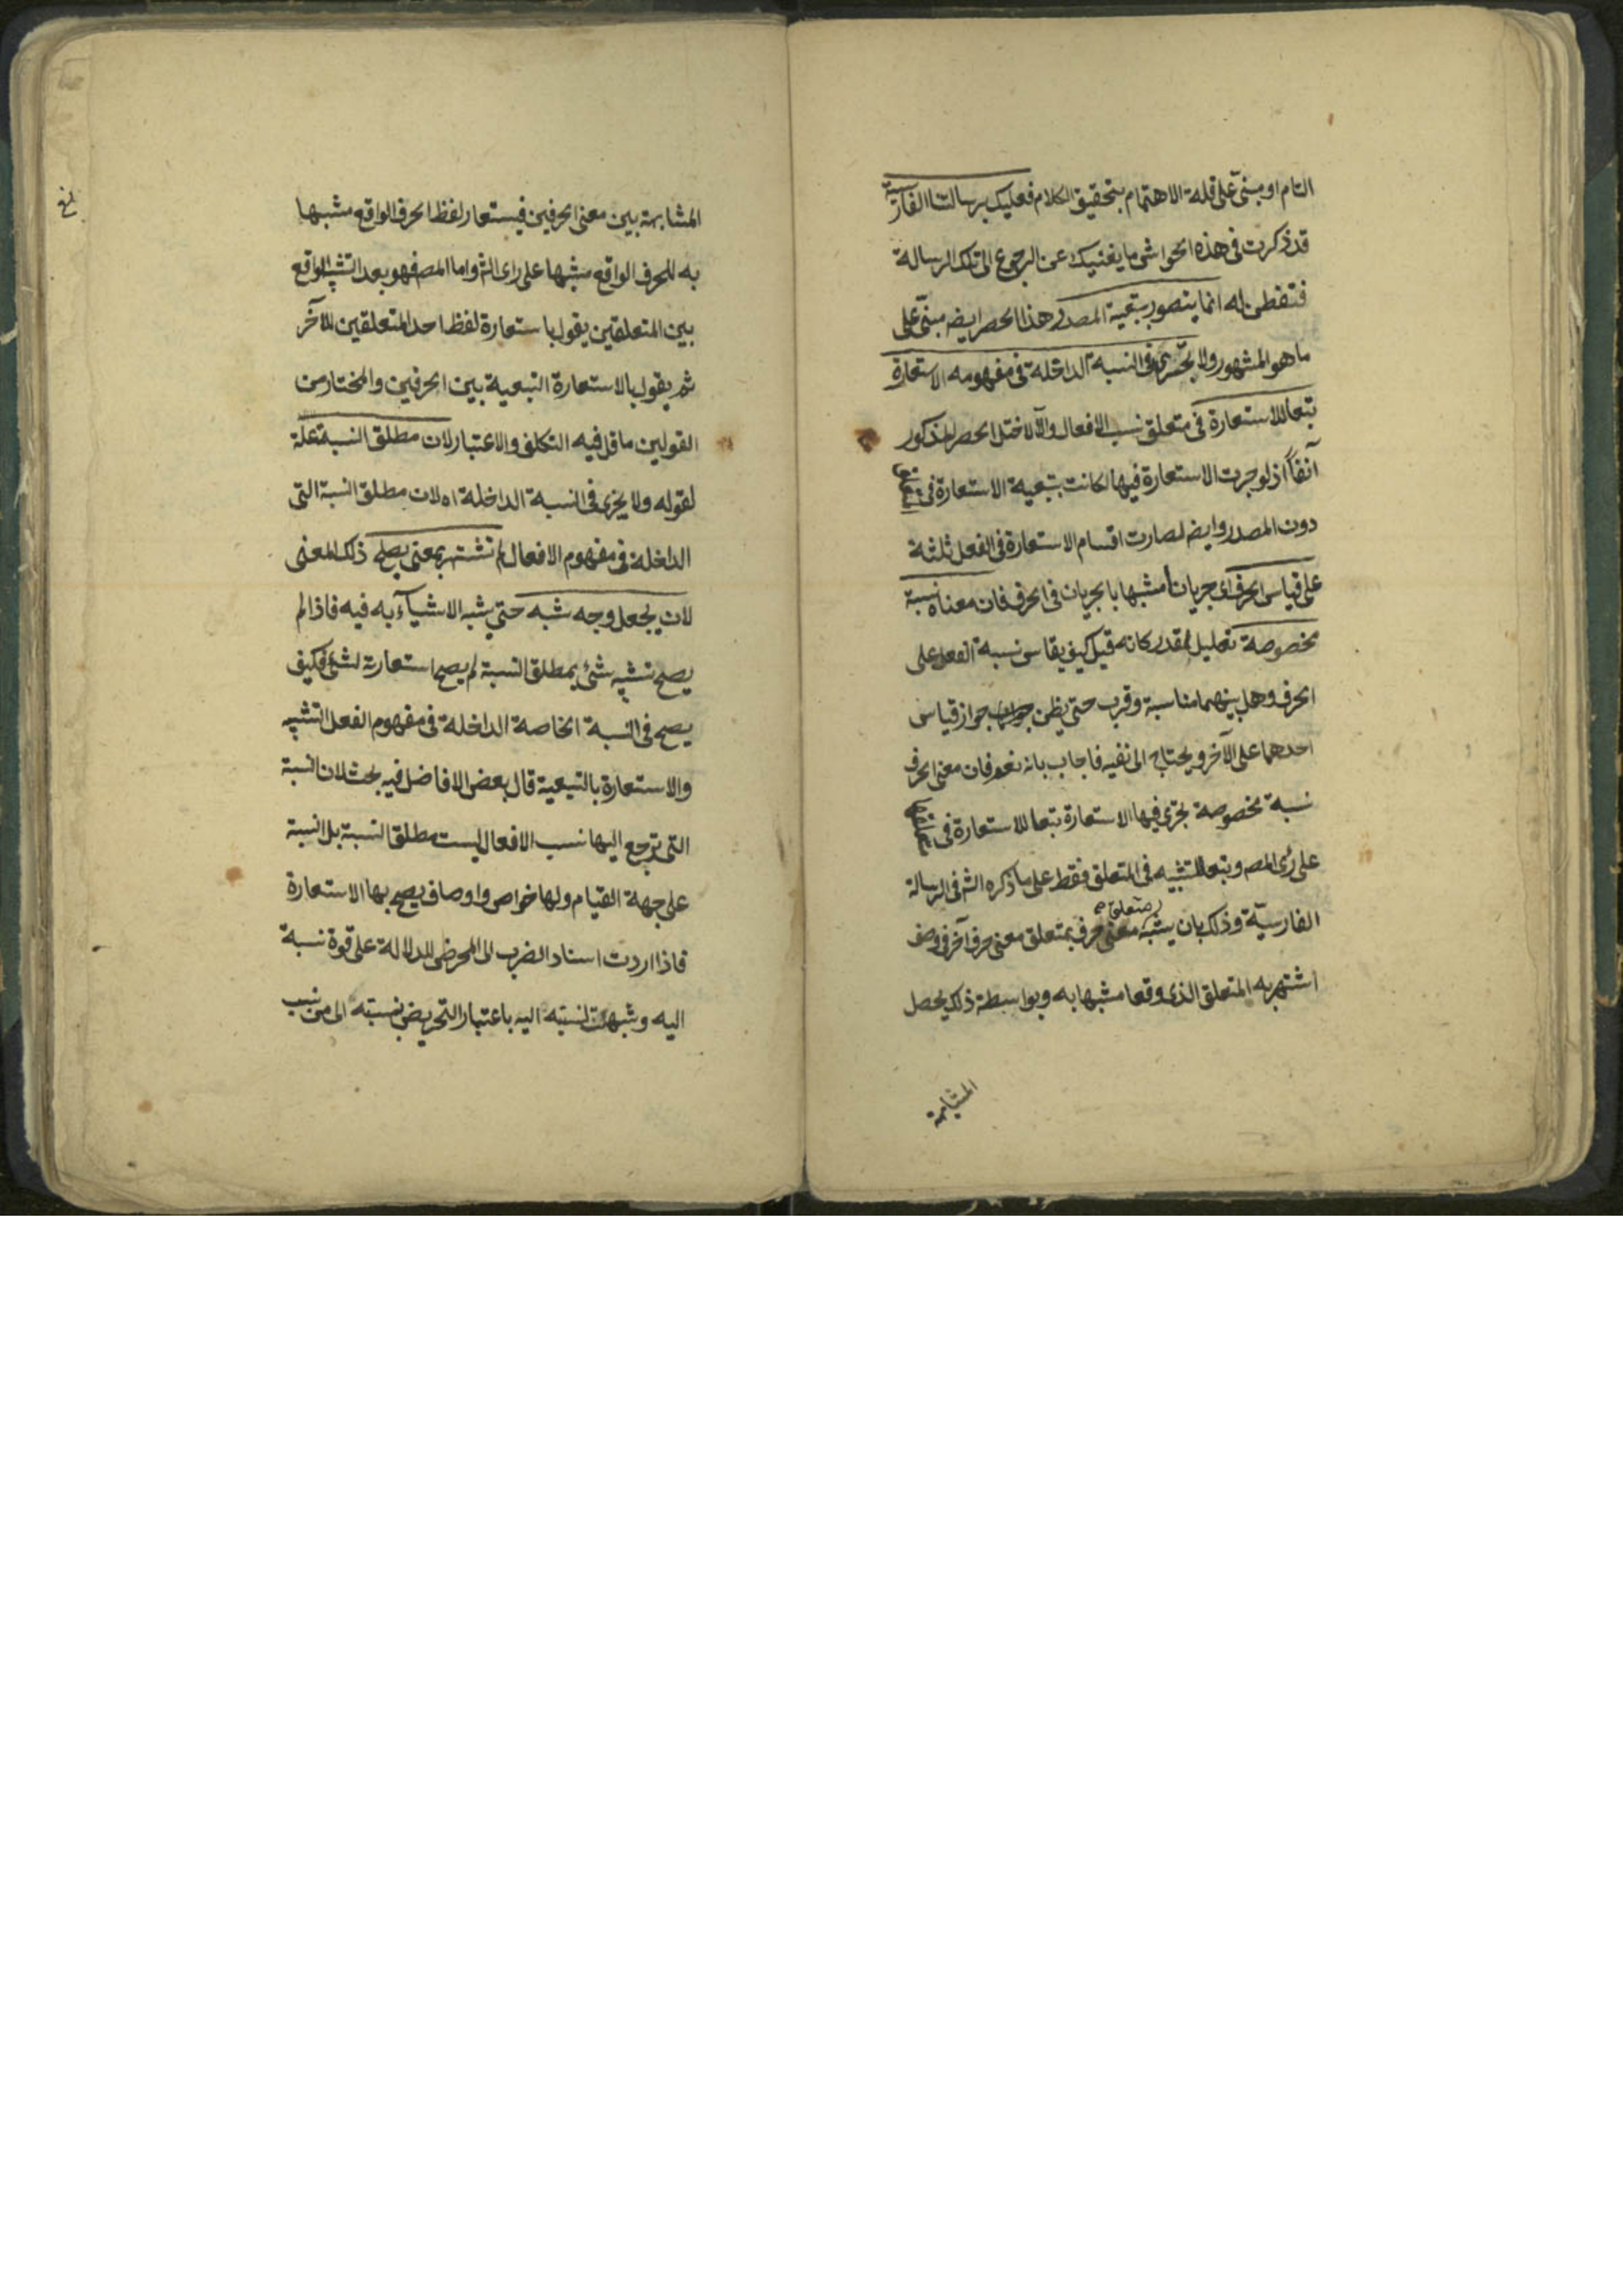 التام او مبنىّ على قلة الاهتمام بتحقيق الكلام فعليك برسالتنا الفارسية
قد ذكرت فى هذه الحواشى ما يغنيك عن الرجوع الى تلك الرسالة
فتفطن له انما يتصور بتبعية المصدر هذا الحصر ايضه مبنىّ على
ما هو المشهور ولا يجرى فى النسبة الداخلة فى مفهومه الاستعارة
تبعا للاستعارة فى متعلق نسب الافعال والّا لاختل الحصر المذكور
آنفاً اذ لو جرت الاستعارة فيها لكانت بتبعية الاستعارة فى متعلق
دون المصدر وايضه لصارت اقسام الاستعارة فى الفعل ثلثة
على قياس الحرف اى جريانا مشبها بالجريان فى الحرف فان معناه نسبة
مخصوصة تعليل لمقدر كانه قيل كيف يقاس نسبة الفعل على
الحرف وهل بينهما مناسبة وقرب حتى يظن جواز قياس
احدهما على الآخر ويحتاج الى نفيه فاجاب بانه نعم فان معنى الحرف
نسبة مخصوصة يجرى فيها الاستعارة تبعا للاستعارة فى متعلق
على رٰى المصه وتبعا للتشبيه فى المتعلق فقط على ما ذكره الشه فى الرسالة
الفارسيّة وذلك بان يشبّه متعلق معنى حرف بمتعلق معنى حرف آخر فى وصف
اشتهر به المتعلق الذى وقعا مشبها به وبواسطة ذلك يحصل
المشابهة
المشابهة بين معنى الحرفين فيستعار لفظ الحرف الواقع مشبها
به للحرف الواقع مشبها على راى الشه واما المصه فهو بعد التشبيه الواقع
بين المتعلقين يقول باستعارة لفظ احد المتعلقين للآخر
ثم يقول بالاستعارة التبعية بين الحرفين والمختار من
القولين ما قل فيه التكلف والاعتبار لان مطلق النسبة علة
لقوله ولا يجرى فى النسبة الداخلة اه لان مطلق النسبة التى
الداخلة فى مفهوم الافعال لم تشتهر بمعنى يصلح ذلك المعنى
لان يجعل وجه شبه حتى يشبه الاشيآء به فيه فاذا لم
يصح تشبيه شئ بمطلق النسبة لم يصح استعارته لشئ فكيف
يصح فى النسبة الخاصة الداخلة فى مفهوم الفعل التشبيه
والاستعارة بالتبعية قال بعض الافاضل فيه بحث لان النسبة
التى ترجع اليها نسب الافعال ليست مطلق النسبة بل النسبة
على جهة القيام ولها خواص واوصاف يصح بها الاستعارة
فاذا اردت اسناد الضرب الى المحرض للدلالة على قوة نسبة
اليه وشبهت نسبته اليه باعتبار التحريض بنسبته الى من نسب